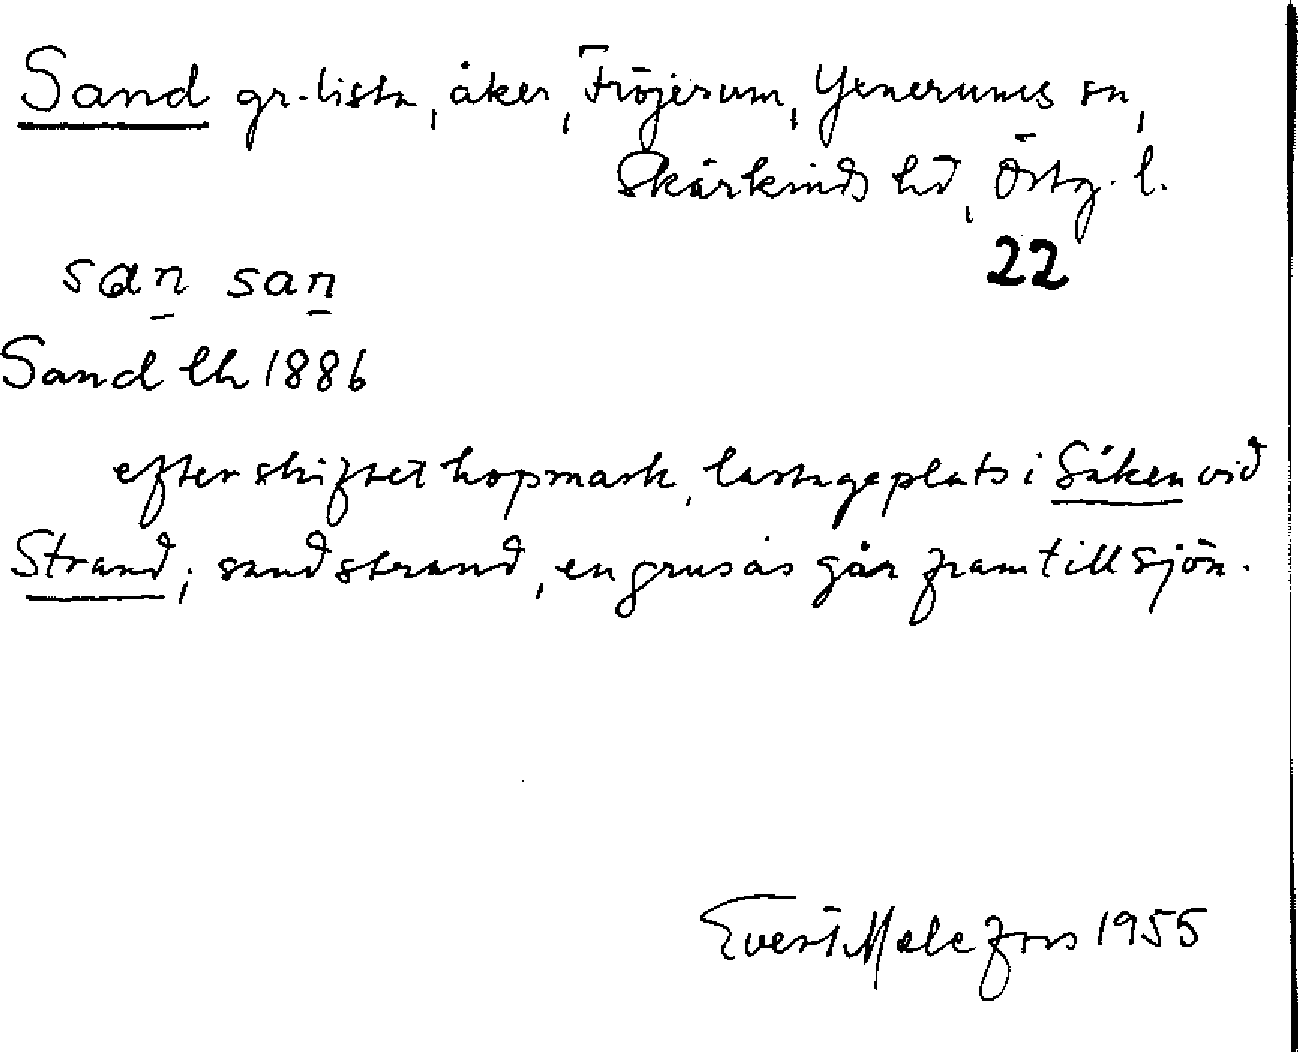 Sand gr.lista, åker, Fröjerum, Yxnerums sn,
Skärkinds hd, Östg. l.
22
san san
Sand lh 1886
efter skiftet hopmark, lastageplats i Såken vid
Strand; sandstrand, en grusås går fram till sjön.
Evert Melefors 1955